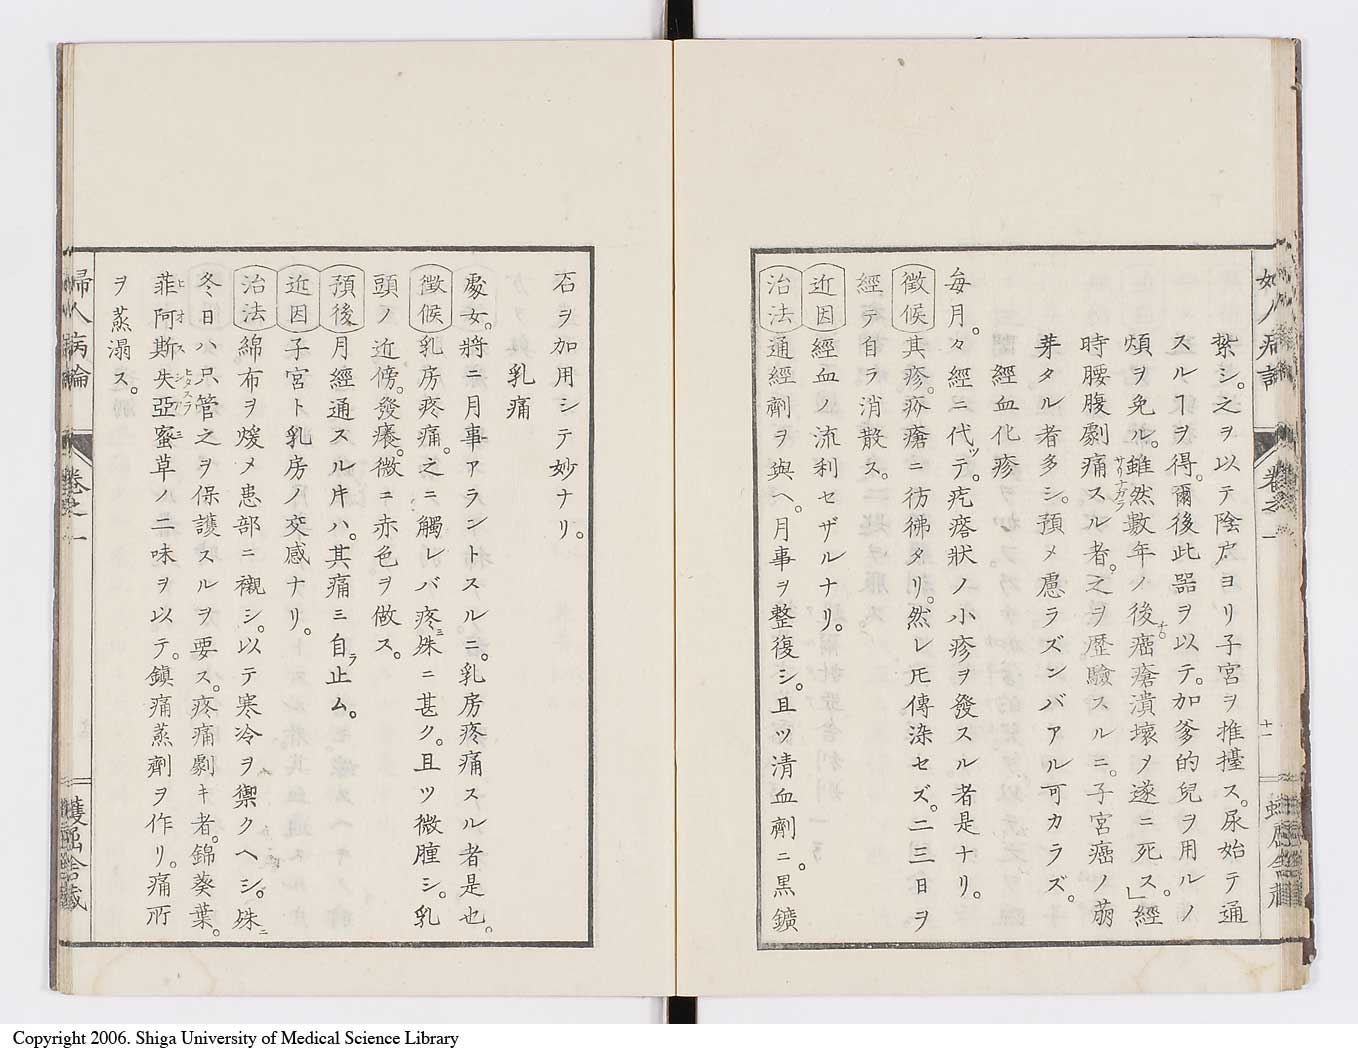 婦人病論
卷之一
十一
蠖屈舍藏
紮シ。之ヲ以テ陰户ヨリ子宮ヲ推擡ス。尿始テ通
スルヿヲ得。爾後此器ヲ以テ。加爹的兒ヲ用ルノ
煩ヲ免ル。雖然數年ノ後癌瘡潰壞〆遂ニ死ス」經
時腰腹劇痛スル者。之ヲ歴驗スルニ。子宮癌ノ萠
芽タル者多シ。預メ慮ラズンバアル可カラズ。
經血化疹
每月。々經ニ代ッテ。疙瘩狀ノ小疹ヲ發スル者是ナリ。
徵候 其疹。疥瘡ニ彷彿タリ。然レ𪜈傳染セズ。二三日ヲ
經テ自ラ消散ス。
近因 經血ノ流利セザルナリ。
治法 通經劑ヲ與ヘ。月事ヲ整復シ。且ツ清血劑ニ。黑鑛
石ヲ加用シテ妙ナリ。
乳痛
處女。將ニ月事アラントスルニ。乳房疼痛スル者是也。
徵候 乳房疼痛。之ニ觸レバ疼殊ニ甚ク。且ツ微腫シ。乳
頭ノ近傍。發癢。微ニ赤色ヲ做ス。
預後 月經通スル片ハ。其痛ミ自ラ止ム。
近因 子宮ト乳房ノ交感ナリ。
治法 綿布ヲ煖メ患部ニ襯シ。以テ寒冷ヲ禦クヘシ。殊ニ
冬日ハ只管之ヲ保護スルヲ要ス。疼痛劇キ者。錦葵葉。
菲阿斯失亞蜜草ノ二味ヲ以テ。鎮痛蒸劑ヲ作リ。痛所
ヲ蒸溻ス。
婦人病論
卷之一
蠖屈舍藏
Copyright 2006. Shiga University of Medical Science Library